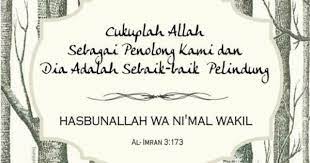 Cukuplah Allah
Sebagai Penolong Kami dan
Dia Adalah Sebaik-baik Pelindung
HASBUNALLAH WA NI'MAL WAKIL
AL- IMRAN 3:173